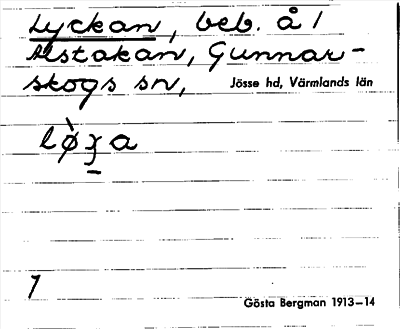 Lyckan, beb. å 1
Alstakan, Gunnar-
skogs sn, Jösse hd, Värmlands län
1
Gösta Bergman 1913–14